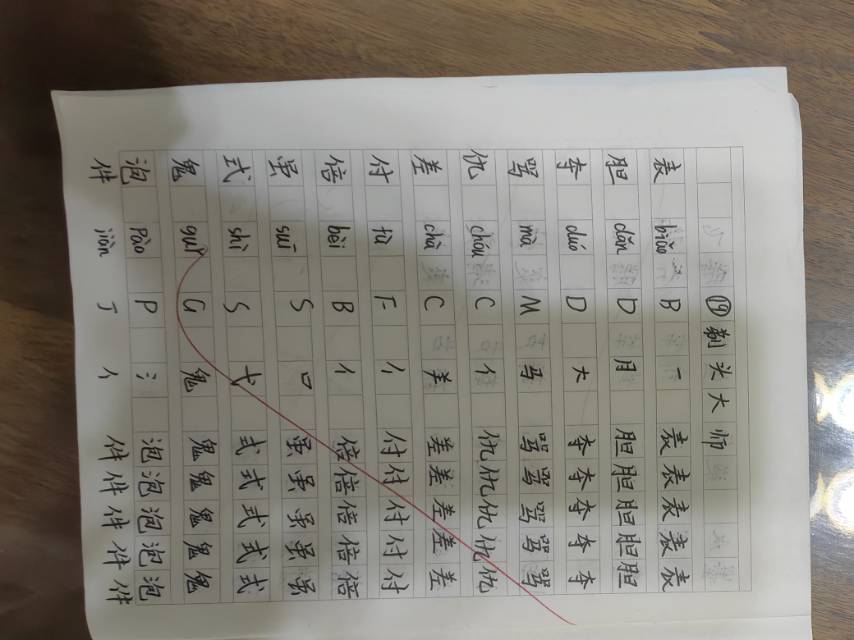 ⑲剃头大师
表 biǎo B 一 表表表表表
胆 dǎn D 月 胆胆胆胆胆
夺 duó D 大 夺夺夺夺夺
骂 mà M 马 骂骂骂骂骂
仇 chóu C 亻 仇仇仇仇仇
差 chà C 羊 差差差差差
付 fù F 亻 付付付付付
倍 bèi B 亻 倍倍倍倍倍
虽 suī S 口 虽虽虽虽虽
式 shì S 弋 式式式式式
鬼 guǐ G 鬼 鬼鬼鬼鬼鬼
泡 pào P 氵 泡泡泡泡泡
件 jiàn J 亻 件件件件件